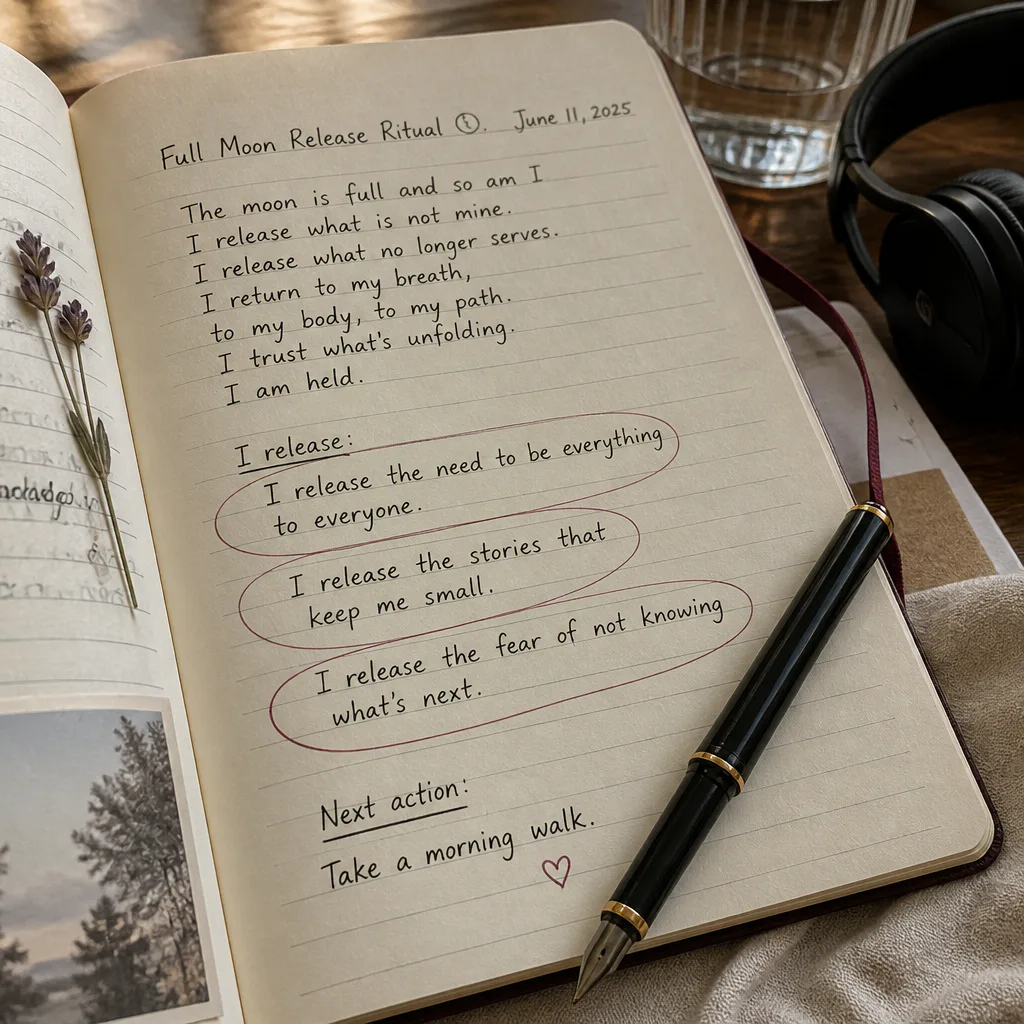 Full Moon Release Ritual. June 11, 2025
The moon is full and so am I
I release what is not mine.
I release what no longer serves.
I return to my breath,
to my body, to my path.
I trust what's unfolding.
I am held.
I release:
I release the need to be everything
to everyone.
I release the stories that
keep me small.
I release the fear of not knowing
what's next.
Next action:
Take a morning walk.